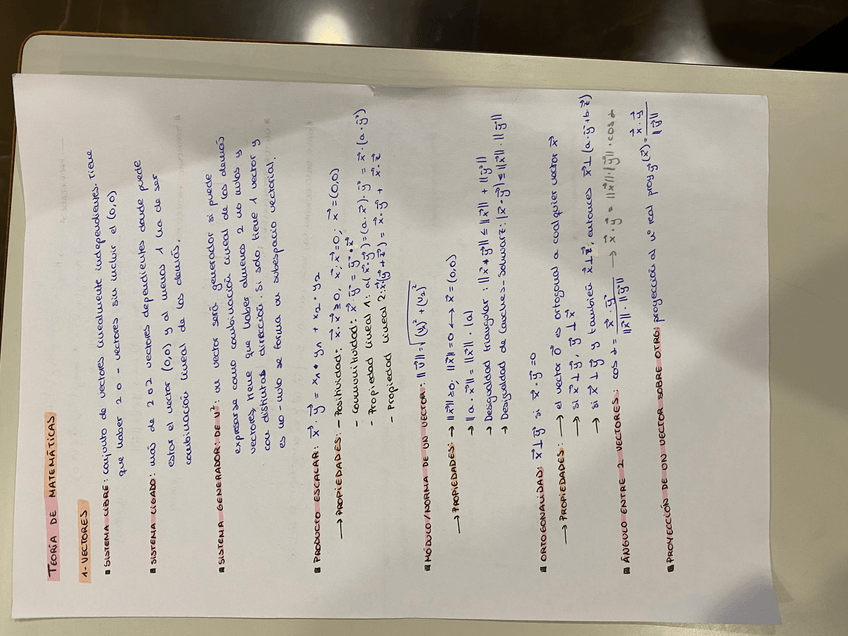 TEORÍA DE MATEMÁTICAS
1- VECTORES
■ SISTEMA LIBRE: conjunto de vectores linealmente independientes. Tiene
que haber 2 o - vectores sin incluir el (0,0)
■ SISTEMA LIGADO: más de 2 o 2 vectores dependientes donde puede
estar el vector (0,0) y al menos 1 ha de ser
combinación lineal de los demás.
■ SISTEMA GENERADOR DE V²: un vector será generador si puede
expresarse como combinación lineal de los demás
vectores, tiene que haber almenos 2 no nulos y
con distinta dirección. Si solo tiene 1 vector y
es no-nulo se forma un subespacio vectorial.
■ PRODUCTO ESCALAR: x⃗ · y⃗ = x₁ · y₁ + x₂ · y₂
→ PROPIEDADES: - Positividad: x⃗ · x⃗ ≥ 0, x⃗ · x⃗ = 0; x⃗ = (0,0)
- Conmutitividad: x⃗ · y⃗ = y⃗ · x⃗
- Propiedad lineal 1: a(x⃗ · y⃗) = (a · x⃗) · y⃗ = x⃗ · (a · y⃗)
- Propiedad lineal 2: x⃗(y⃗ + z⃗) = x⃗ · y⃗ + x⃗ · z⃗
■ MÓDULO/NORMA DE UN VECTOR: ||v⃗|| = √(v₁)² + (v₂)²
→ PROPIEDADES: → ||x⃗|| ≥ 0, ||x⃗|| = 0 ↔ x⃗ = (0,0)
→ ||a · x⃗|| = ||x⃗|| · |a|
→ Desigualdad triangular: ||x⃗ + y⃗|| ≤ ||x⃗|| + ||y⃗||
→ Desigualdad de Cauchee-Schwarz: |x⃗ · y⃗| ≤ ||x⃗|| · ||y⃗||
■ ORTOGONALIDAD: x⃗ ⊥ y⃗ si x⃗ · y⃗ = 0
→ PROPIEDADES: → el vector 0⃗ es ortogonal a cualquier vector x⃗
→ si x⃗ ⊥ y⃗, y⃗ ⊥ x⃗
→ si x⃗ ⊥ y⃗ y también x⃗ ⊥ z⃗, entonces x⃗ ⊥ (a · y⃗ + b z⃗)
■ ÁNGULO ENTRE 2 VECTORES: cos α = x⃗ · y⃗ / ||x⃗|| · ||y⃗|| → x⃗ · y⃗ = ||x⃗|| · ||y⃗|| · cos α
■ PROYECCIÓN DE UN VECTOR SOBRE OTRO: proyección al nº real proy y⃗ (x⃗) = x⃗ · y⃗ / ||y⃗||